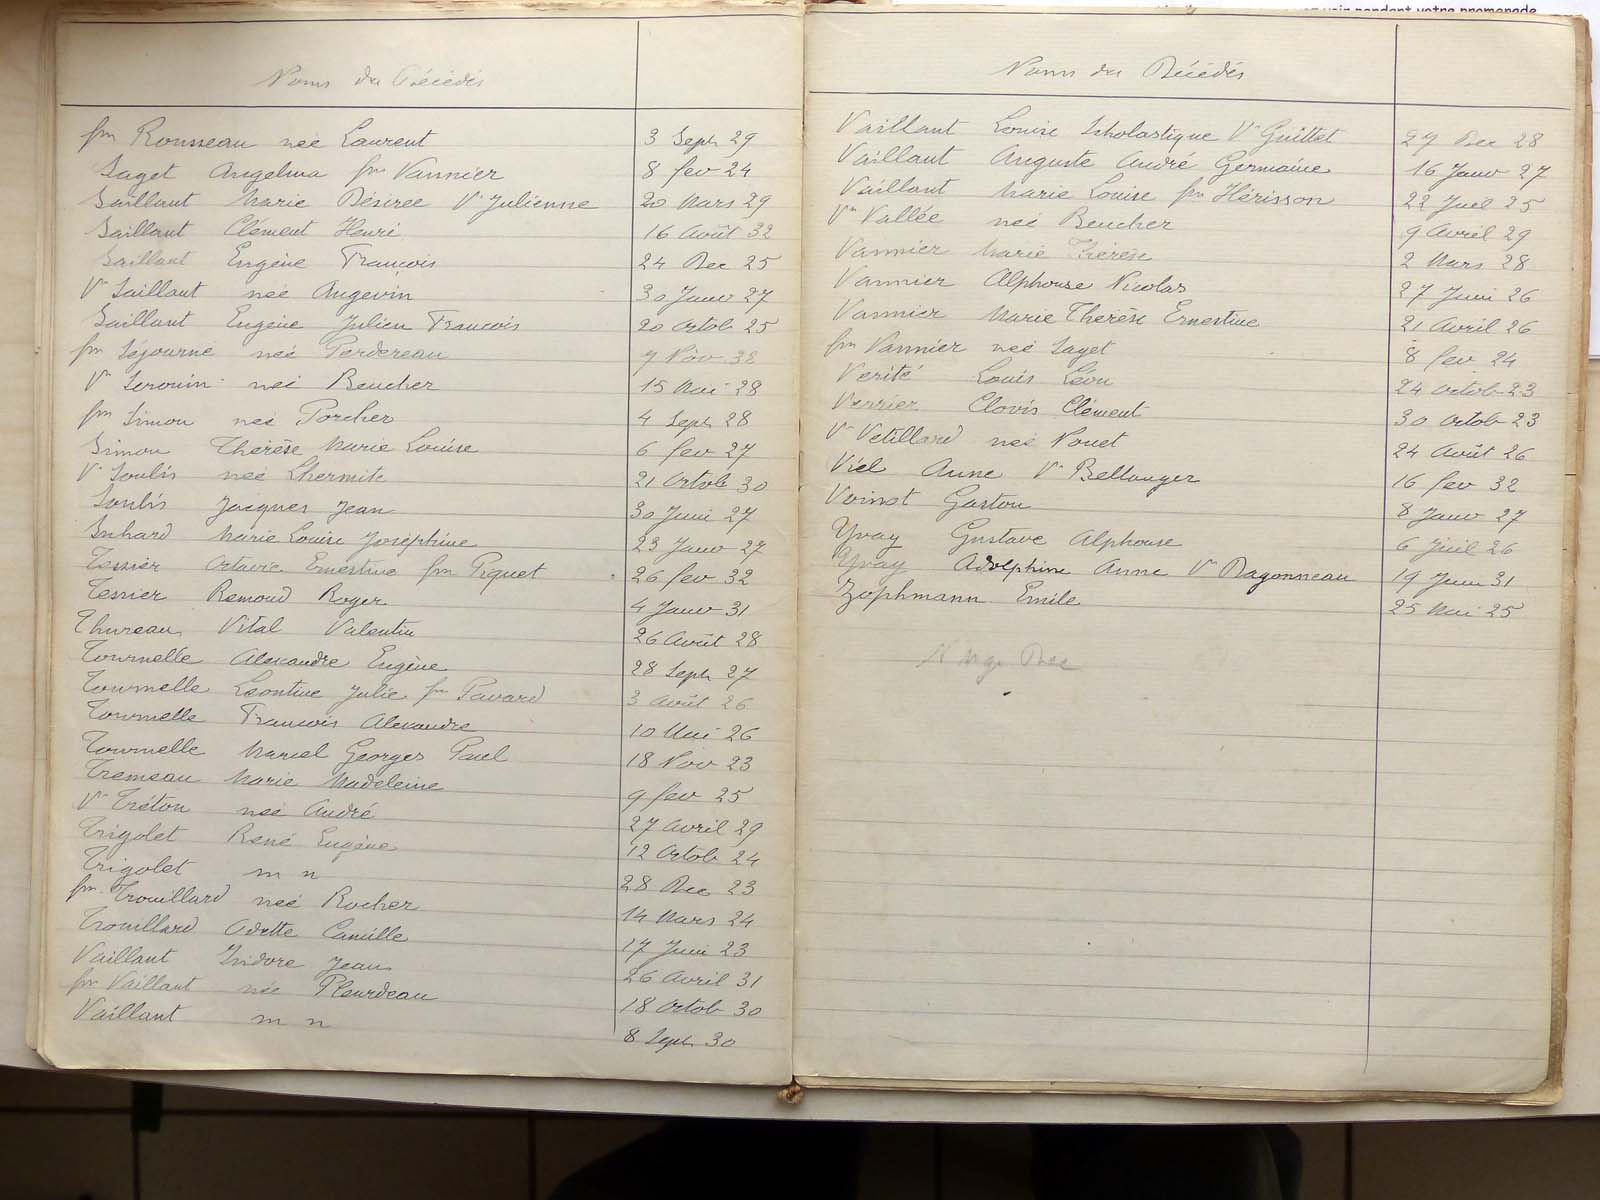 voir pendant votre promenade
Noms des Décédés
fm Rousseau née Laurent 3 Sept 29
Saget Angelina fm Vannier 8 fev 24
Saillant Marie Désirée Ve Julienne 20 Mars 29
Saillant Clément Henri 16 Août 32
Saillant Eugène François 24 Dec 25
Ve Saillant née Angevin 30 Janv 27
Saillant Eugène Julien François 20 Octob 25
fm Séjourne née Perdereau 7 Nov 38
Ve née Beucher 15 Mai 28
fm Simon née Porcher 4 Sept 28
Simon Thérèse Marie Louise 6 fev 27
Ve Soulis née Lhermite 21 Octob 30
Soulis Jacques Jean 30 Juin 27
Suhard Marie Louise Joséphine 23 Janv 27
Tessier Octavie Ernestine fm Piquet 26 fev 32
Tessier Remond Roger 4 Janv 31
Thureau Vital Valentin 26 Août 28
Tournelle Alexandre Eugène 28 Sept 27
Tournelle Léontine Julie fm Pavard 3 Août 26
Tournelle François Alexandre 10 Mai 26
Tournelle Marcel Georges Paul 18 Nov 23
Tremeau Marie Madeleine 9 fev 25
Ve Tréton née André 27 Avril 29
Trigolet René Eugène 12 Octob 24
Trigolet m n 28 Dec 23
fm Trouillard née Rocher 14 Mars 24
Trouillard Odette Camille 17 Juin 23
Vaillant Isidore Jean 26 Avril 31
fm Vaillant née Pleurdeau 18 Octob 30
Vaillant m n 8 Sept 30
Noms des Décédés
Vaillant Louise Scholastique Ve Guittet 29 Dec 28
Vaillant Auguste André Germaine 16 Janv 27
Vaillant Marie Louise fm Hérisson 22 Juil 25
Ve Vallée née Beucher 9 Avril 29
Vannier Marie Thérèse 2 Mars 28
Vannier Alphonse Nicolas 27 Juin 26
Vannier Marie Thérèse Ernestine 21 Avril 26
fm Vannier née Saget 8 fev 24
Verité Louis Léon 24 Octob 23
Verrier Clovis Clément 30 Octob 23
Ve Vetillard née Pouet 24 Août 26
Viel Anne Ve Bellanger 16 fev 32
Voinot Gaston 8 Janv 27
Yvay Gustave Alphonse 6 Juil 26
Yvay Adolphine Anne Ve Dagonneau 19 Juin 31
Zophmann Emile 25 Mai 25